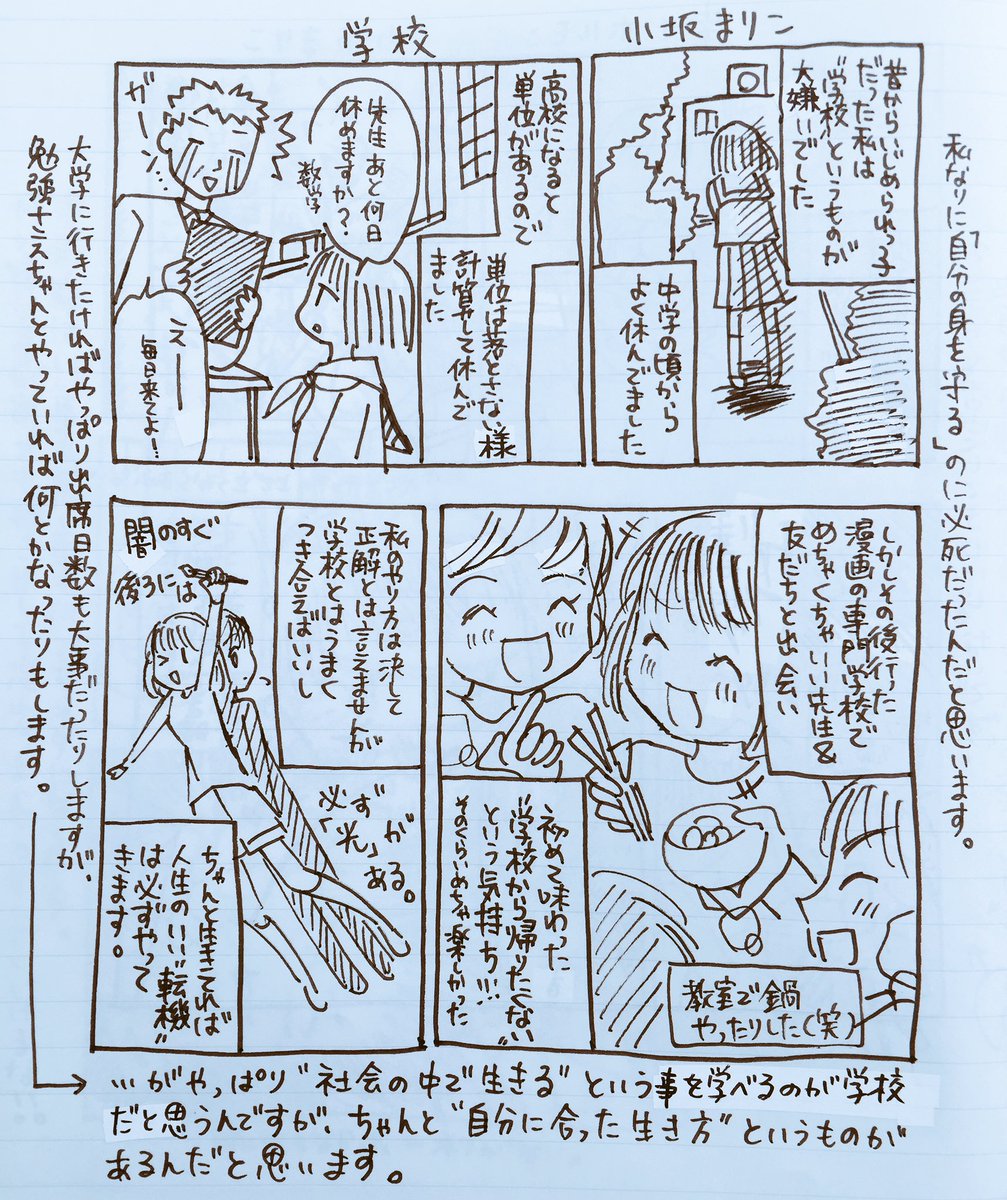 学校
小坂まりこ
昔からいじめられっ子
だった私は
"学校"というものが
大嫌いでした
中学の頃から
よく休んでました
高校になると
単位があるので
単位は落とさない様
計算して休んで
ました
先生あと何日
休めますか？
数学
ガーン
えー
毎日来てよ！
しかしその後行った
漫画の専門学校で
めちゃくちゃいい先生&
友だちと出会い
初めて味わった
"学校から帰りたくない"
という気持ち!!!
そのくらいめちゃ楽しかった
教室で鍋
やったりした(笑)
私のやり方は決して
正解とは言えませんが
学校とはうまく
つき合えばいいし
闇のすぐ
後ろには
必ず
「光」が
ある。
ちゃんと生きてれば
人生のいい"転機"
は必ずやって
きます。
私なりに「自分の身を守る」のに必死だったんだと思います。
大学に行きたければやっぱり出席日数も大事だったりしますが、
勉強さえちゃんとやっていれば何とかなったりもします。
…がやっぱり"社会の中で生きる"という事を学べるのが学校
だと思うんですが、ちゃんと"自分に合った生き方"というものが
あるんだと思います。